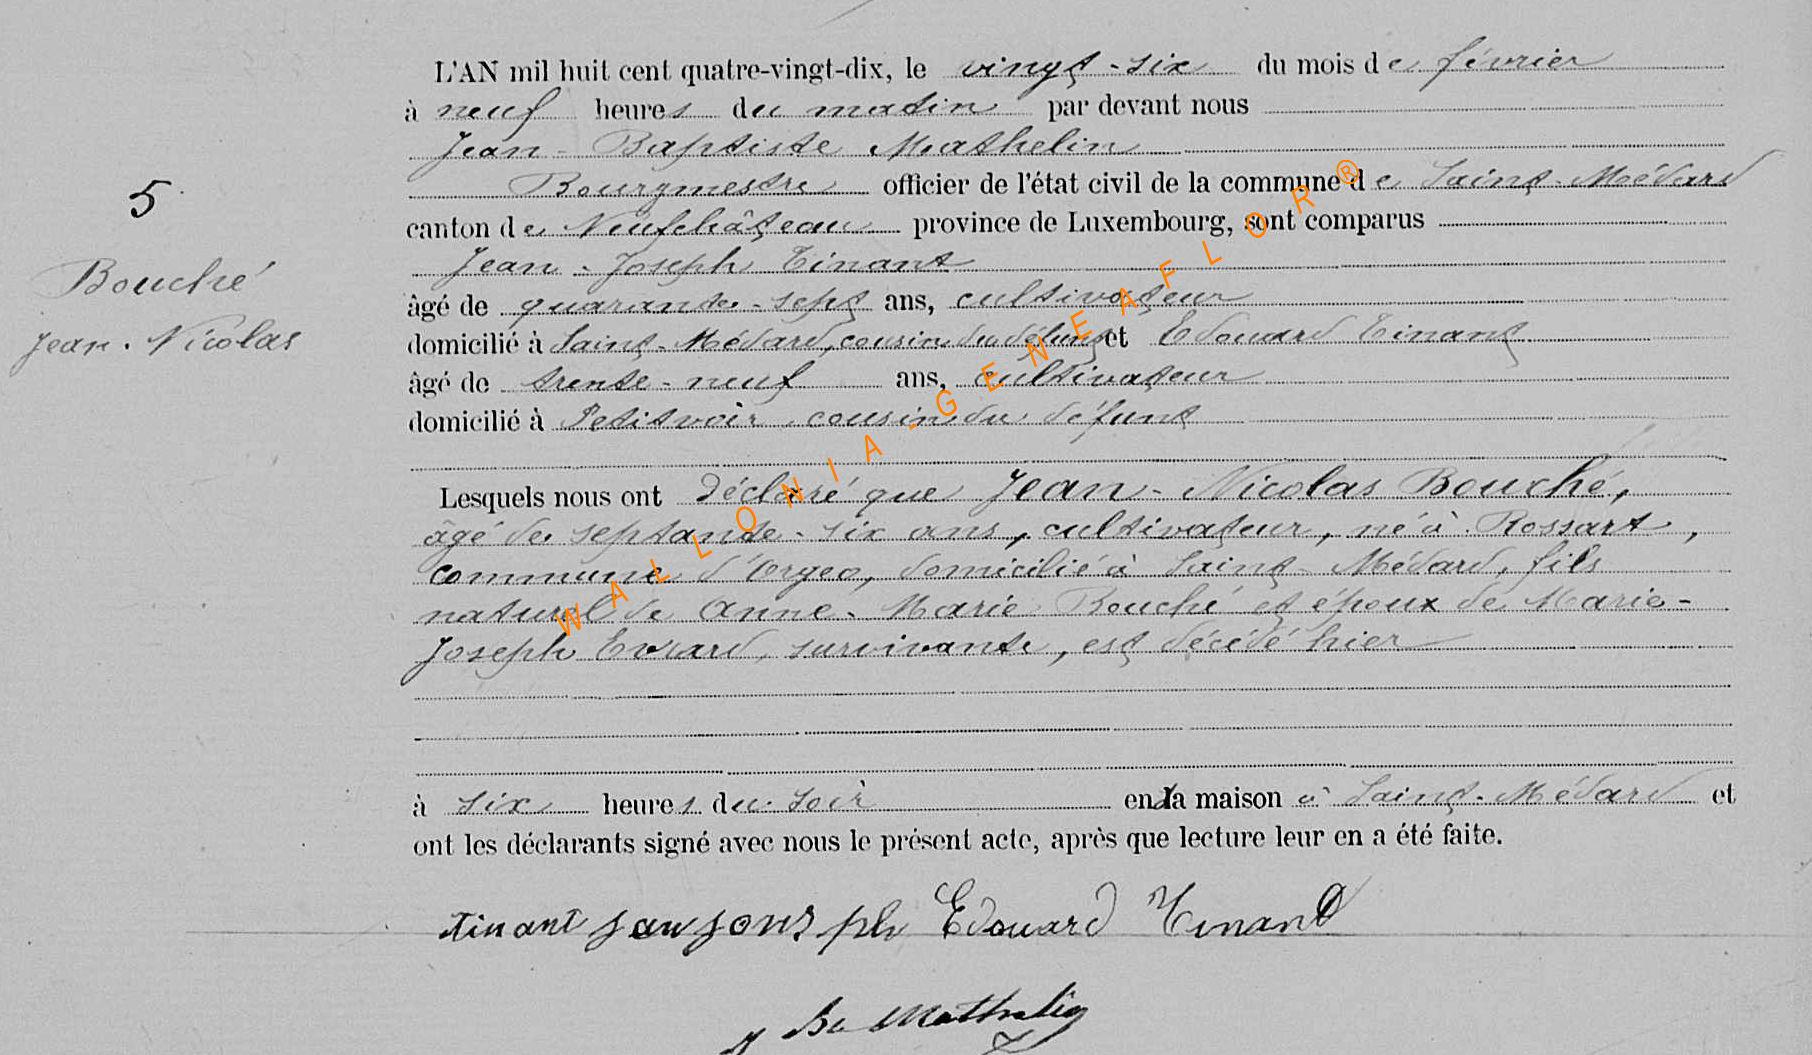 L'AN mil huit cent quatre-vingt-dix, le vingt-six du mois de février
à neuf heures du matin par devant nous
Jean-Baptiste Mathelin
Bourgmestre officier de l'état civil de la commune de Saint-Médard
canton de Neufchâteau province de Luxembourg, sont comparus
Jean-Joseph Tinant
âgé de quarante-sept ans, cultivateur
domicilié à Saint-Médard, cousin du défunt et Edouard Tinant
âgé de trente-neuf ans, cultivateur
domicilié à Petitvoir, cousin du défunt
5
Bouché
Jean-Nicolas
Lesquels nous ont déclaré que Jean-Nicolas Bouché,
âgé de septante-six ans, cultivateur, né à Rossart,
commune d'Orgeo, domicilié à Saint-Médard, fils
naturel de Anne-Marie Bouché et époux de Marie-
Joseph Evrard, survivante, est décédé hier
à six heures du soir en sa maison à Saint-Médard et
ont les déclarants signé avec nous le présent acte, après que lecture leur en a été faite.
tinant Edouard Tinant
Mathelin
WALLONIA-GENEAFLOR®